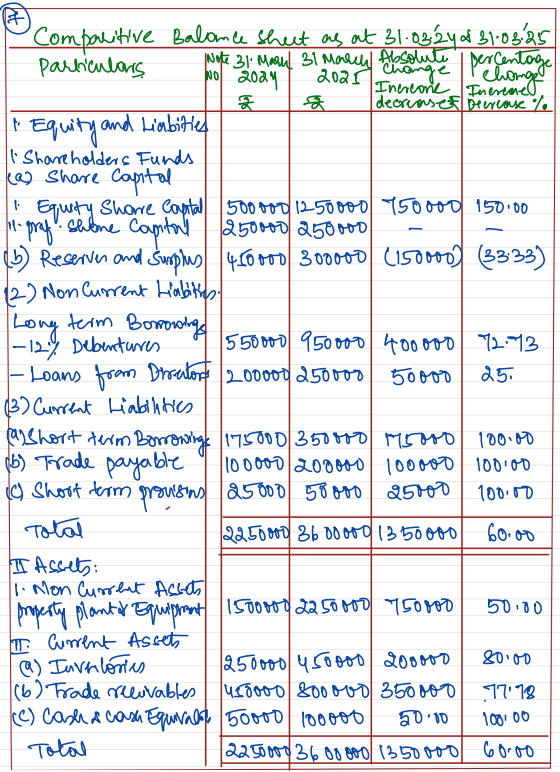 7
Comparitive Balance Sheet as at 31.03.'24 & 31.03.'25
Particulars Note No 31 March 2024 ₹ 31 March 2025 ₹ Absolute Change Increase decrease ₹ percentage change Increase Decrease %
1. Equity and Liabities
1. Shareholders Funds
(a) Share Capital
1. Equity Share Capital 500000 1250000 750000 150.00
11. pref. Share Capital 250000 250000 — —
(b) Reserves and Surplus 450000 300000 (150000) (33.33)
(2) Non Current Liabities.
Long term Borrowings
- 12% Debentures 550000 950000 400000 72.73
- Loans from Directors 200000 250000 50000 25.
(3) Current Liabilities
(a) Short term Borrowings 175000 350000 175000 100.00
(b) Trade payable 100000 200000 100000 100.00
(c) Short term provisions 25000 50000 25000 100.00
Total 2250000 3600000 1350000 60.00
II Assets:
1. Non Current Assets
property plant & Equipment 1500000 2250000 750000 50.00
II. Current Assets
(a) Inventories 250000 450000 200000 80.00
(b) Trade receivables 450000 800000 350000 77.78
(c) Cash & cash Equivalent 50000 100000 50.00 100.00
Total 2250000 3600000 1350000 60.00